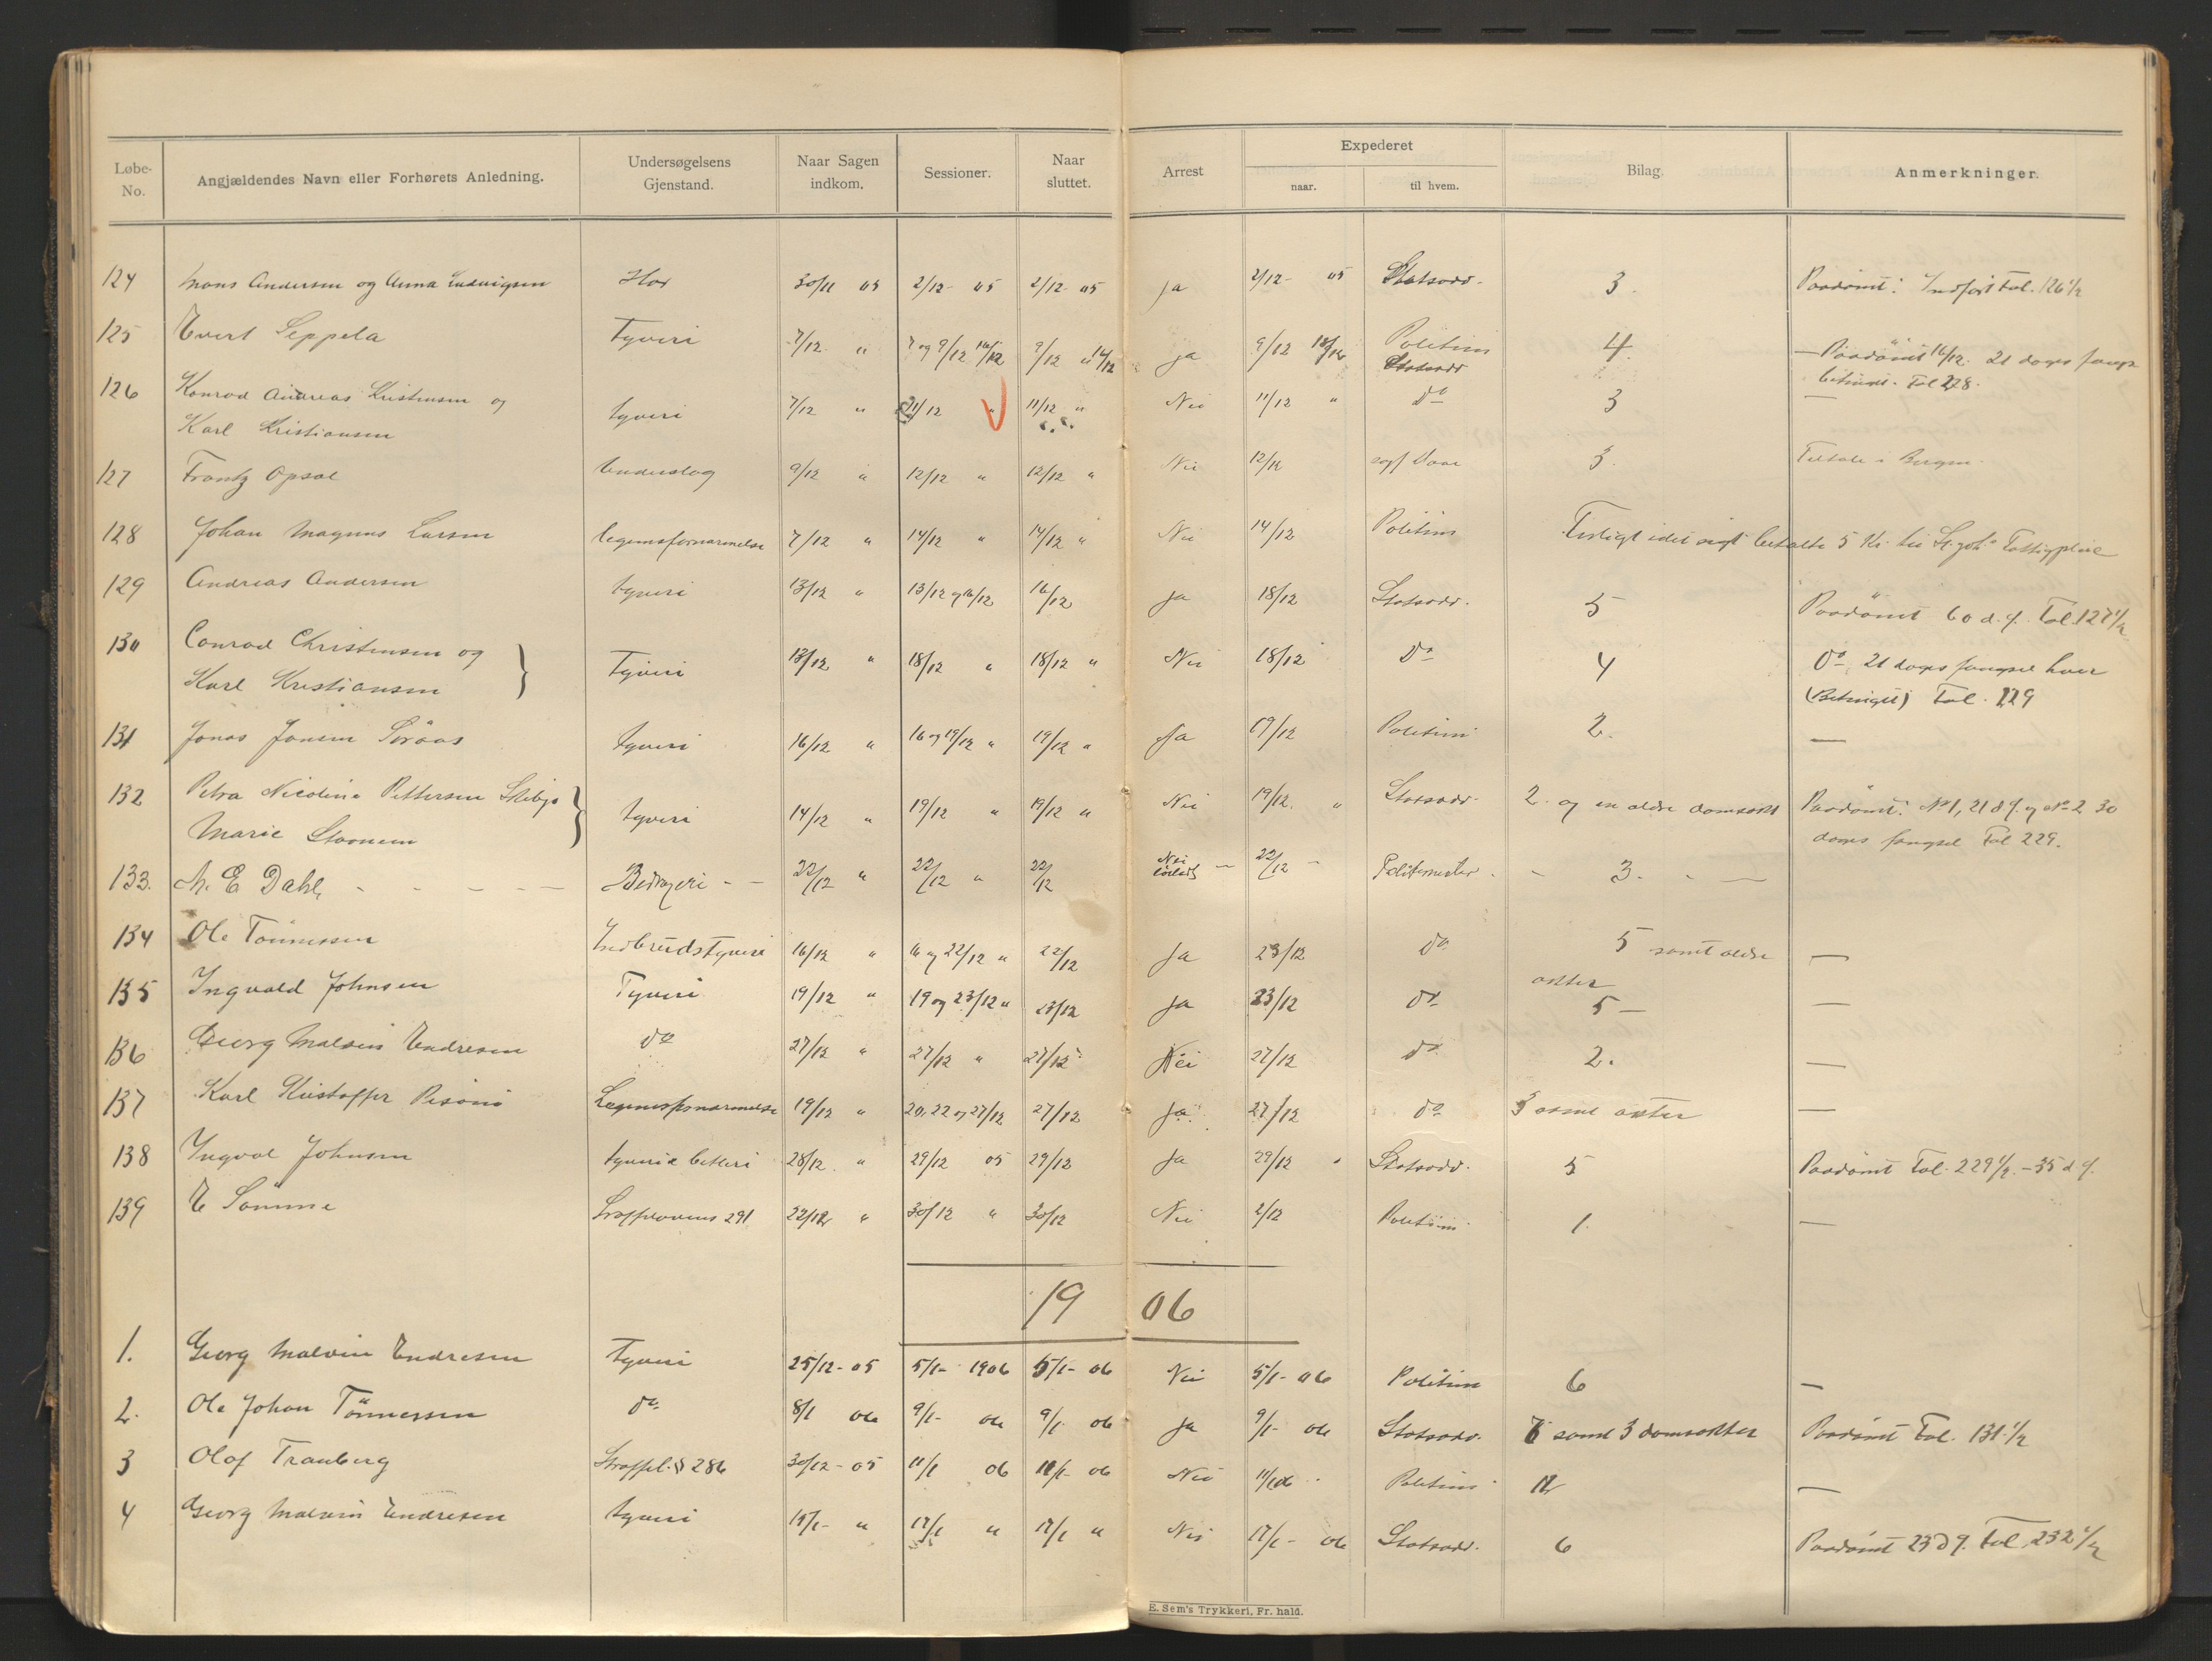 Løbe- No. Angjældendes Navn eller Forhørets Anledning. Undersøgelsens Gjenstand. Naar Sagen indkom. Sessioner. Naar sluttet. Arrest Expederet naar. til hvem. Bilag. Anmerkninger.
124 Mons Andersen og Anna Ludvigsen Hor 30/11 05 2/12 - 05 2/12 - 05 Ja 2/12 - 05 Statsadv. 3. Paadömt: Indført Fol. 126 1/2
125 Evert Seppela Tyveri 7/12 " 7 og 9/12 16/12 9/12 " 16/12 Ja 9/12 18/12 Politim Statsadv 4. — Paadömt 16/12. 21 dages fængs
betinget. Fol 228.
126 Konrad Andreas Kristensen og
Karl Kristiansen tyveri 7/12 " 11/12 " 11/12 " Nei 11/12 " do 3 —
127 Frantz Opsal Underslag 9/12 " 12/12 " 12/12 " Nei 12/12 3. Tiltale i Bergen.
128 Johan Magnus Larsen legemsfornærmelse 7/12 " 14/12 " 14/12 " Nei 14/12 Politim Forligt idet sigt betalte 5 Kr. til
129 Andreas Andersen tyveri 13/12 " 13/12 og 16/12 16/12 Ja 18/12 Statsadv. 5 Paadömt 60 d. f. Fol. 127 1/2
130 Conrad Christensen og
Karl Kristiansen } Tyveri 13/12 " 18/12 " 18/12 " Nei 18/12 Do 4 Do 21 dages fængsel hver
(Betinget) Fol. 129
131 Jonas Jonsen Söraas tyveri 16/12 " 16 og 19/12 " 19/12 " Ja 19/12 Politim 2. —
132 Petra Nicoline Pettersen
Marie } tyveri 14/12 " 19/12 " 19/12 " Nei 19/12. " Statsadv. 2. og en ældre domsakt Paadömt. No 1, 21 d f. og No 2 30
dages fængsel Fol 229.
133. M. E Dahl - - - - - Bedrageri - - 22/12 " 22/12 " 22/12 Nei - 22/12 - Politimester - 3. - —
134 Ole Tönnessen Indbrudstyveri 16/12 " 16 og 22/12 " 22/12 Ja 23/12 do 5 samt ældre
akter —
135 Ingvald Johnsen Tyveri 19/12 " 19 og 23/12 " 23/12 Ja 23/12 do 5 — —
136 Georg Malvin Endresen do 27/12 " 27/12 " 27/12 Nei 27/12 do 2. —
137 Karl Kristoffer Legemsfornærmelse 19/12 " 20, 22 og 27/12 27/12 Ja 27/12 do 3 samt akter —
138 Ingval Johnsen tyveri & betleri 28/12. " 29/12 05 29/12 Ja 29/12 " Statsadv. 5 Paadömt Fol. 229 1/2. - 35 d f.
139 E Sömme Straffelovens 291 22/12 " 30/12 " 30/12 Nei 2/12 Politim 1. —
1906
1. Georg Malvin Endresen Tyveri 25/12 - 05 5/1 - 1906 5/1 - 06 Nei 5/1 - 06 Politim 6 —
2. Ole Johan Tönnessen do 8/1 06 9/1 - 06 9/1 06 Ja 9/1 - 06 Statsadv. 6 samt 3 domsakter Paadömt Fol. 131 1/2
3 Olaf Tranberg Straffel. § 286 30/12 - 05 11/1 06 11/1 - 06 Nei 11/1 06 Politim 12 —
4 Georg Malvin Endresen tyveri 15/1 - " 17/1 " 17/1 " Nei 17/1 - 06 Statsadv. 6 Paadömt 23 d f. Fol 232 1/2
E. Sem's Trykkeri, Fr. hald.